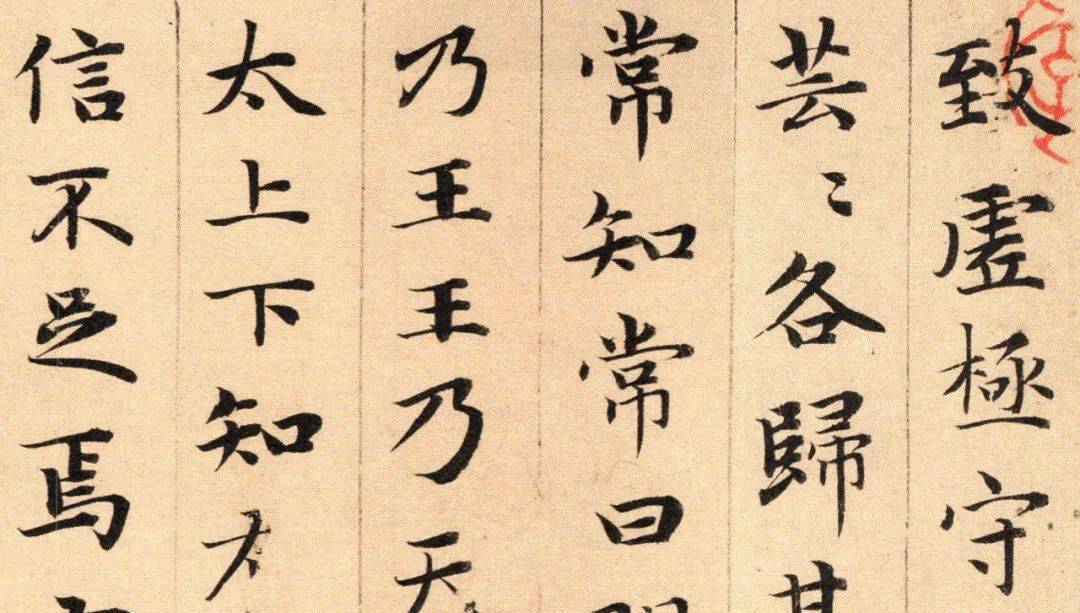 致虛極守
芸〻各歸其
常知常曰明
乃王王乃天
太上下知
信不足焉